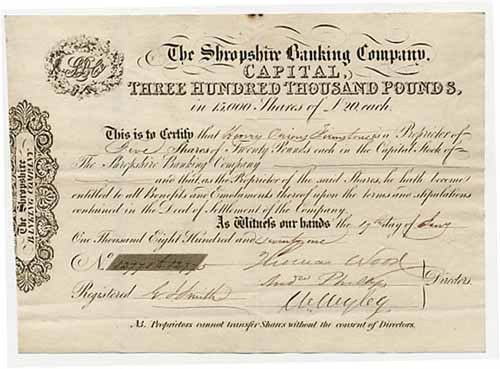 The Shropshire Banking Company.
CAPITAL,
THREE HUNDRED THOUSAND POUNDS,
in 15,000 Shares of £20 each.
This is to Certify that Henry is Proprietor of
Five Shares of Twenty Pounds each in the Capital Stock of
The Shropshire Banking Company
and that as the Proprietor of the said Shares, he hath become
entitled to all Benefits and Emoluments thereof upon the terms and stipulations
contained in the Deed of Settlement of the Company.
As Witness our hands the 19th day of
One Thousand Eight Hundred and
No
Thomas Wood
Andrew Phillips
Directors.
Registered Smith
NB. Proprietors cannot transfer Shares without the consent of Directors.
The Shropshire
BANKING COMPANY